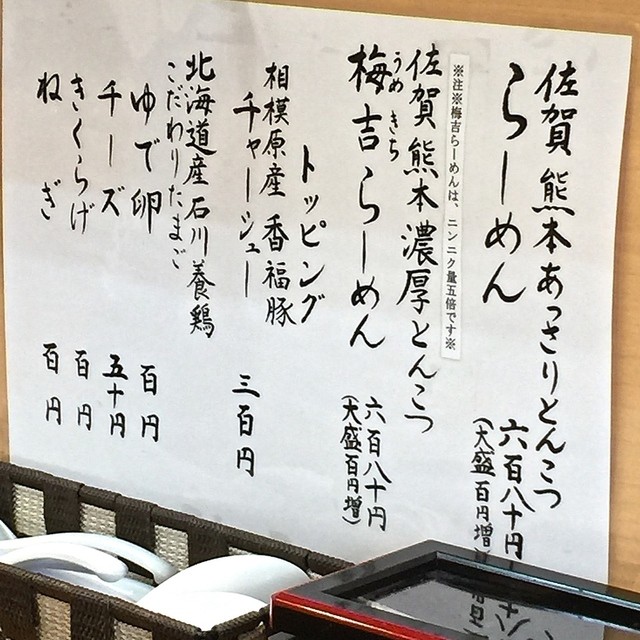 佐賀 熊本あっさりとんこつ
らーめん
六百八十円
(大盛百円増)
※注※梅吉らーめんは、ニンニク量五倍です※
佐賀 熊本 濃厚とんこつ
うめ きち
梅吉らーめん
六百八十円
(大盛百円増)
トッピング
相模原産 香福豚
チャーシュー
三百円
北海道産 石川養鶏
こだわりたまご
ゆで卵
百円
チーズ
五十円
きくらげ
百円
ねぎ
百円